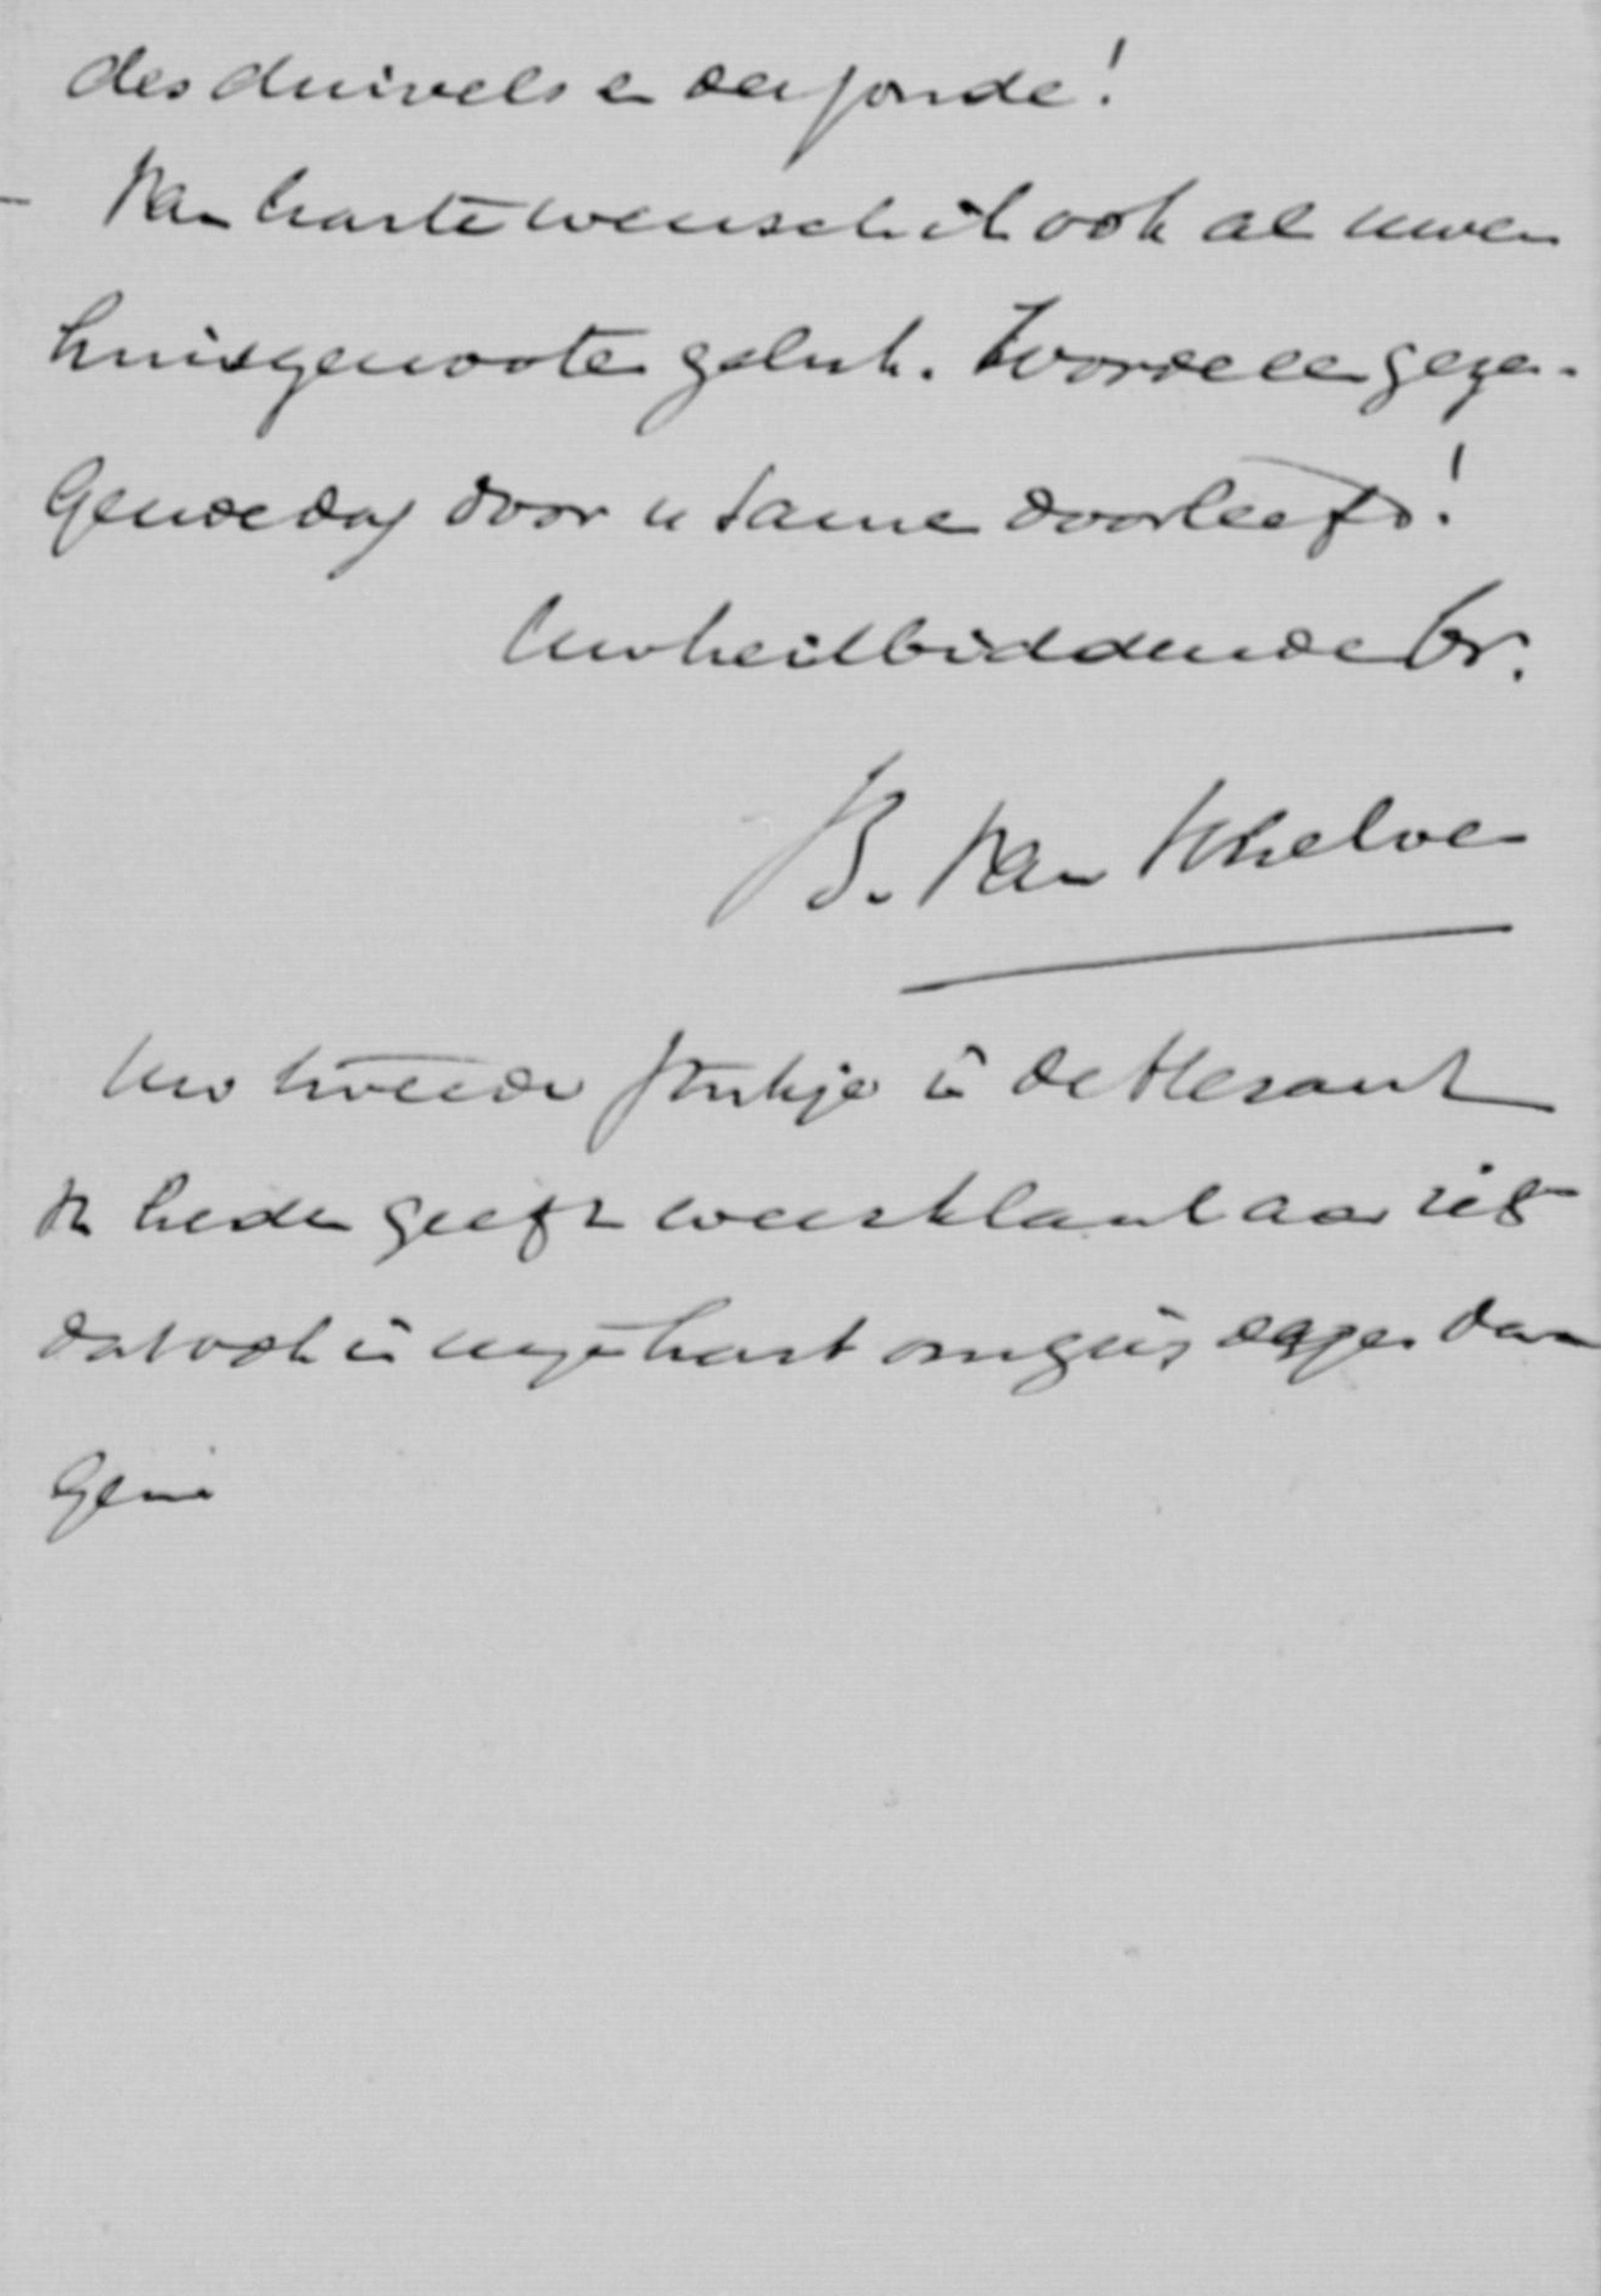 des duivels en der zonde!
- Van harte wensch ik ook al uwen
huisgenooten geluk. Worde een gezegende
dag door u samen doorleefd!
Uw heilbiddende br.
B. van Schelven
Uw tweede stukje in de Heraut
van heden geeft weerklank aan iets
dat ook in mijn hart omging dezer dagen